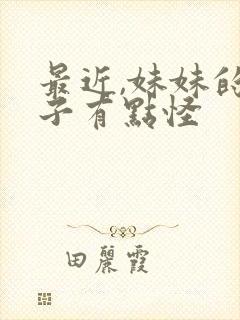 最近,妹妹的
子有點怪
田麗霞